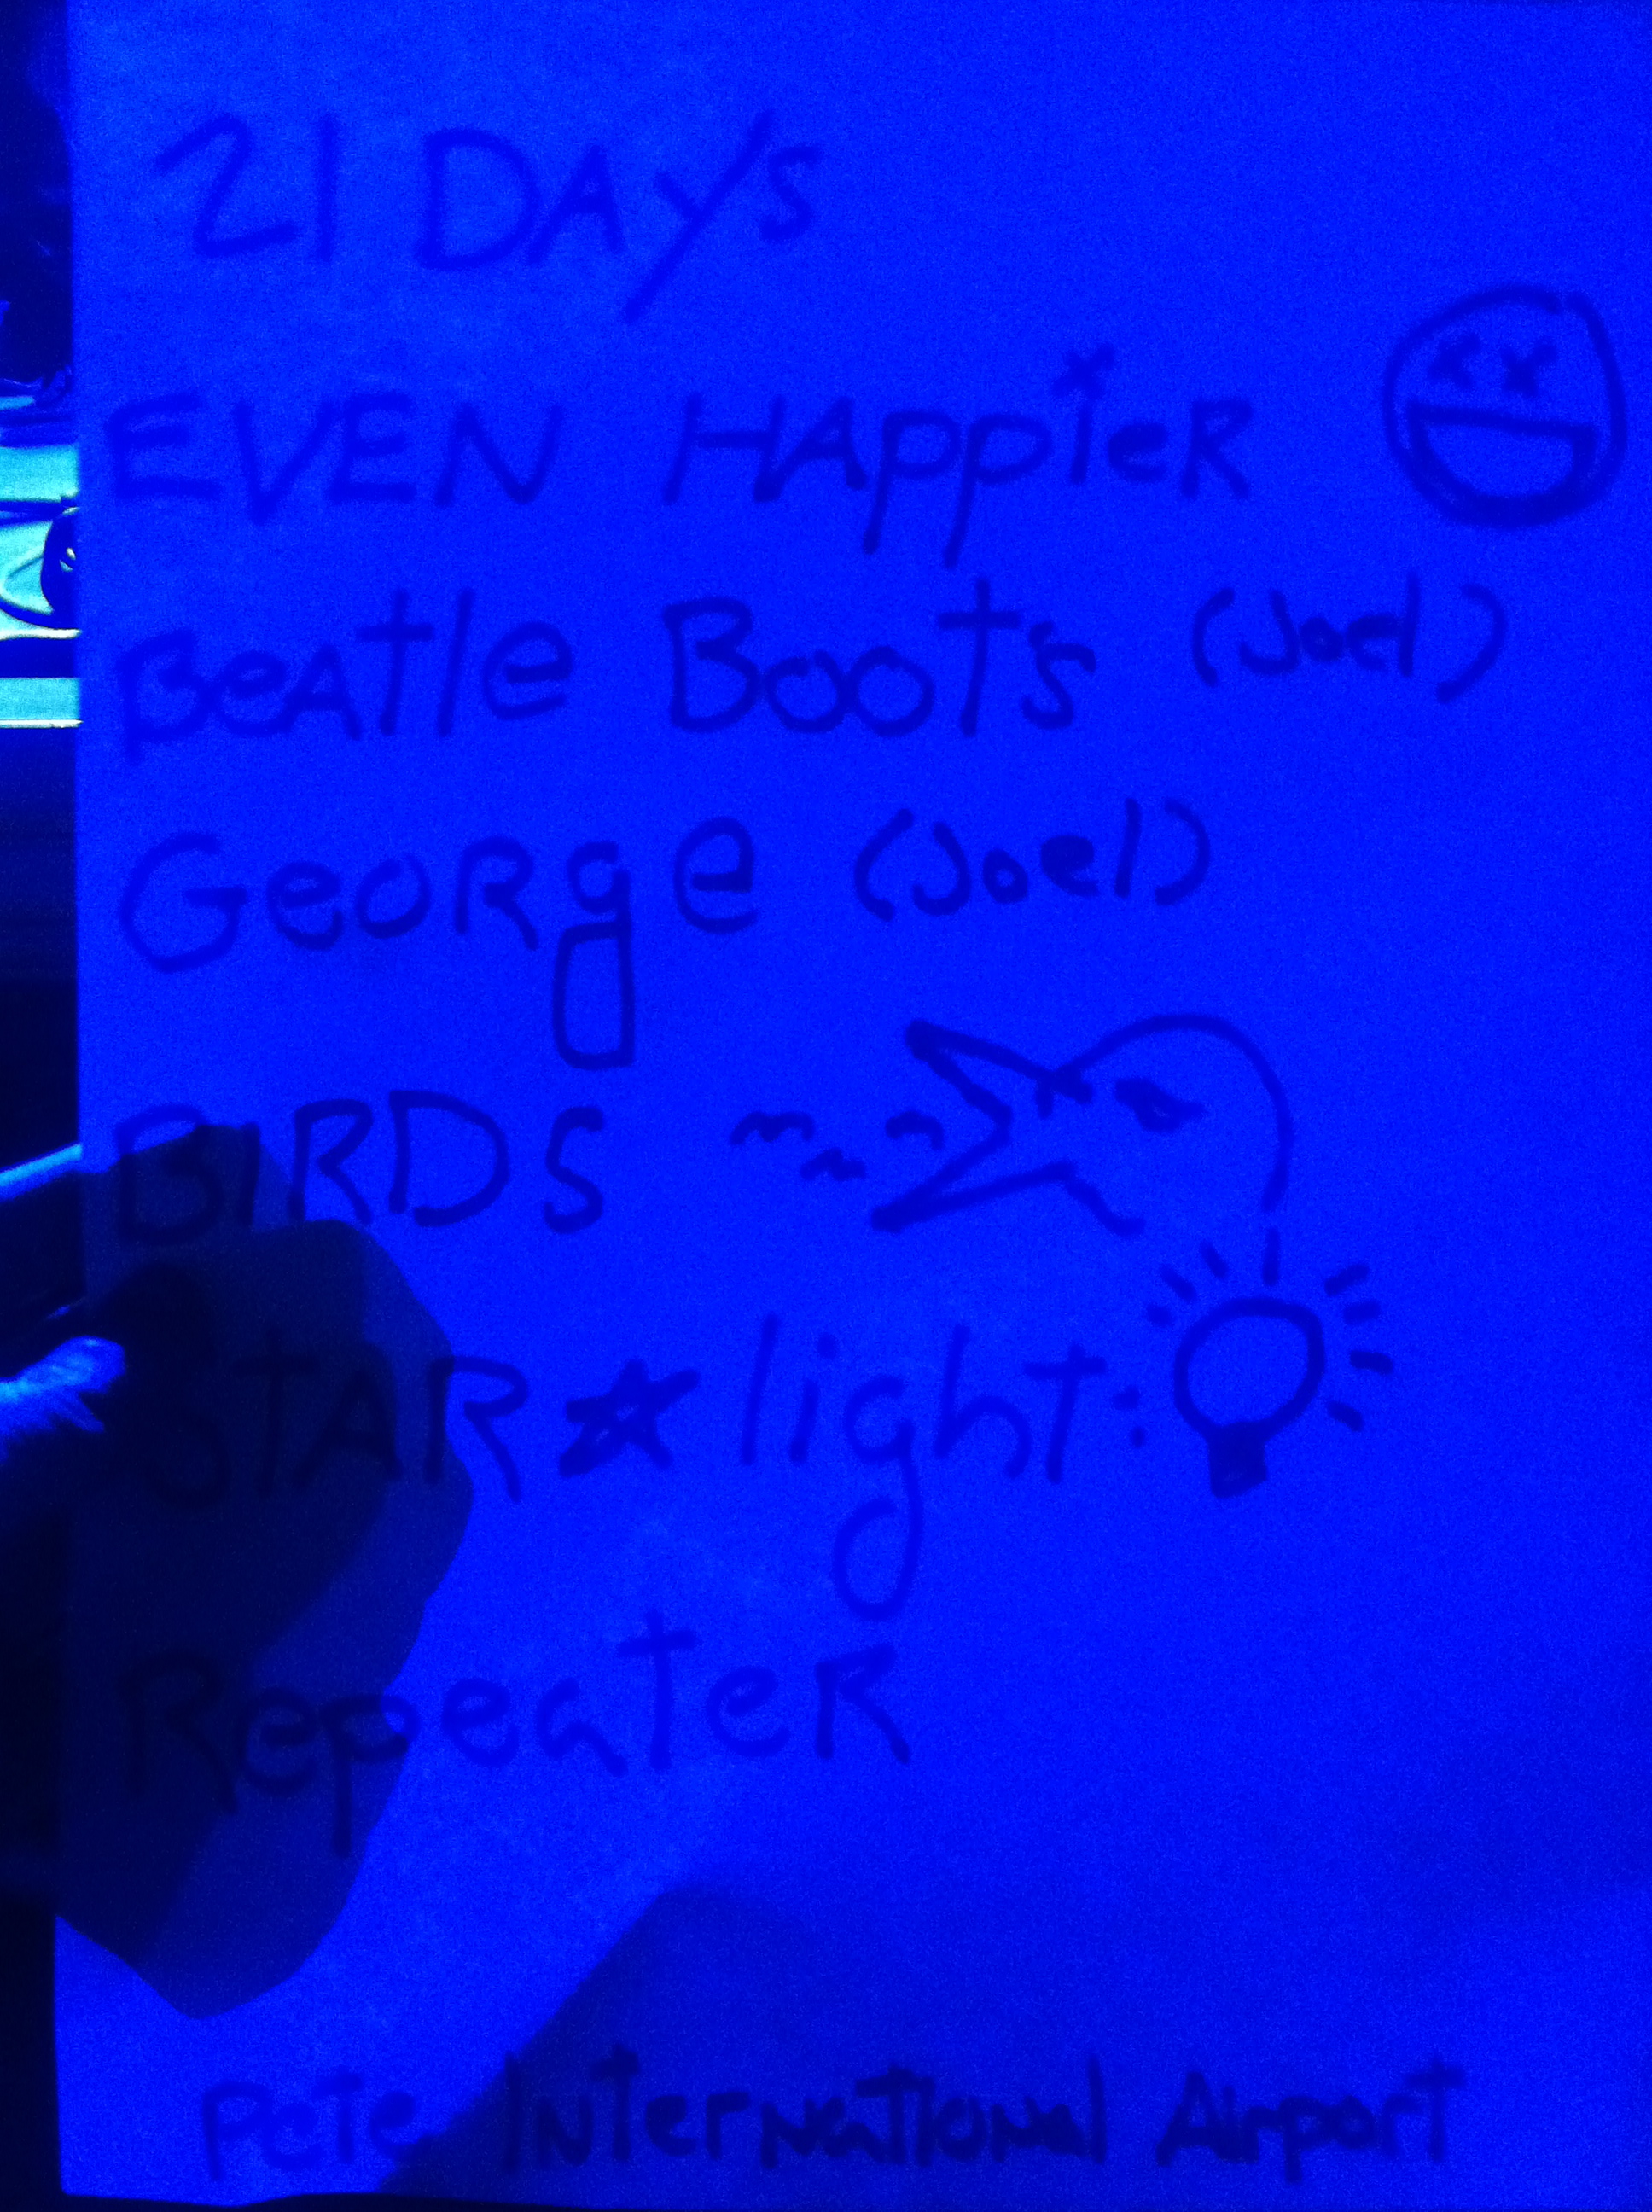 21 DAYS
EVEN HAppieR
BeAtle Boot's (Joel)
GeORge (Joel)
BIRDS
STAR light
RepeateR
Pete International Airport